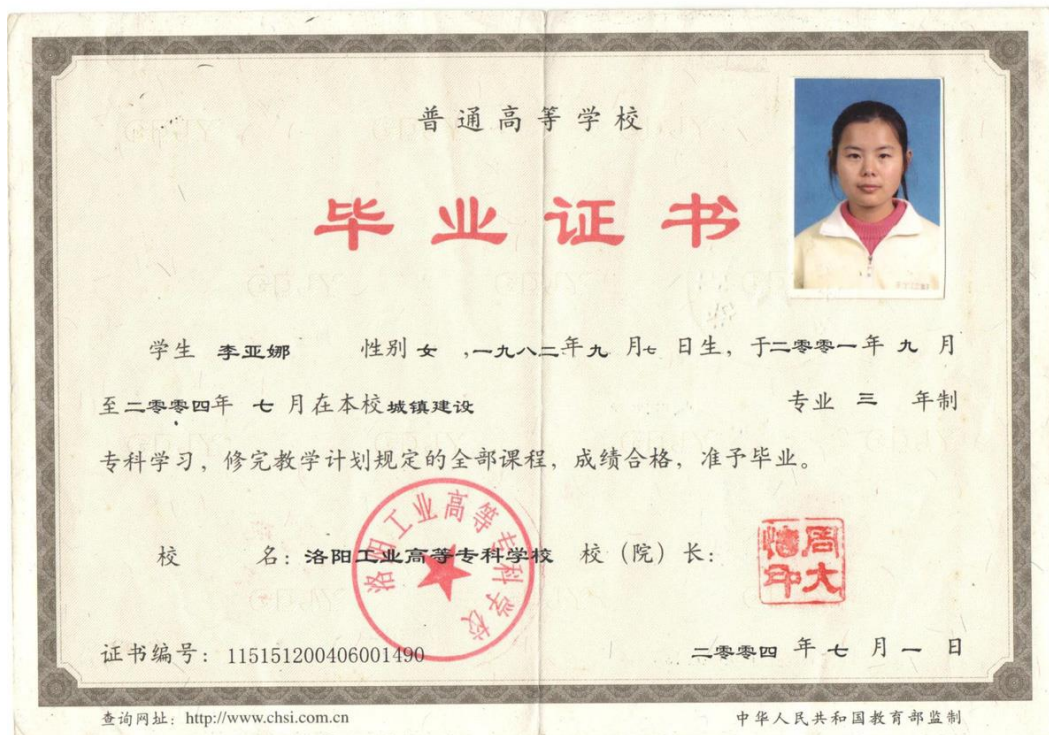 普通高等学校
毕业证书
学生 李亚娜 性别 女 ,一九八二年九 月七 日生，于二零零一年 九 月
至二零零四年 七 月在本校城镇建设 专业 三 年制
专科学习，修完教学计划规定的全部课程，成绩合格，准予毕业。
校 名：洛阳工业高等专科学校 校（院）长：
洛阳工业高等专科学校
证书编号：115151200406001490 二零零四 年 七 月 一 日
查询网址：http://www.chsi.com.cn 中华人民共和国教育部监制